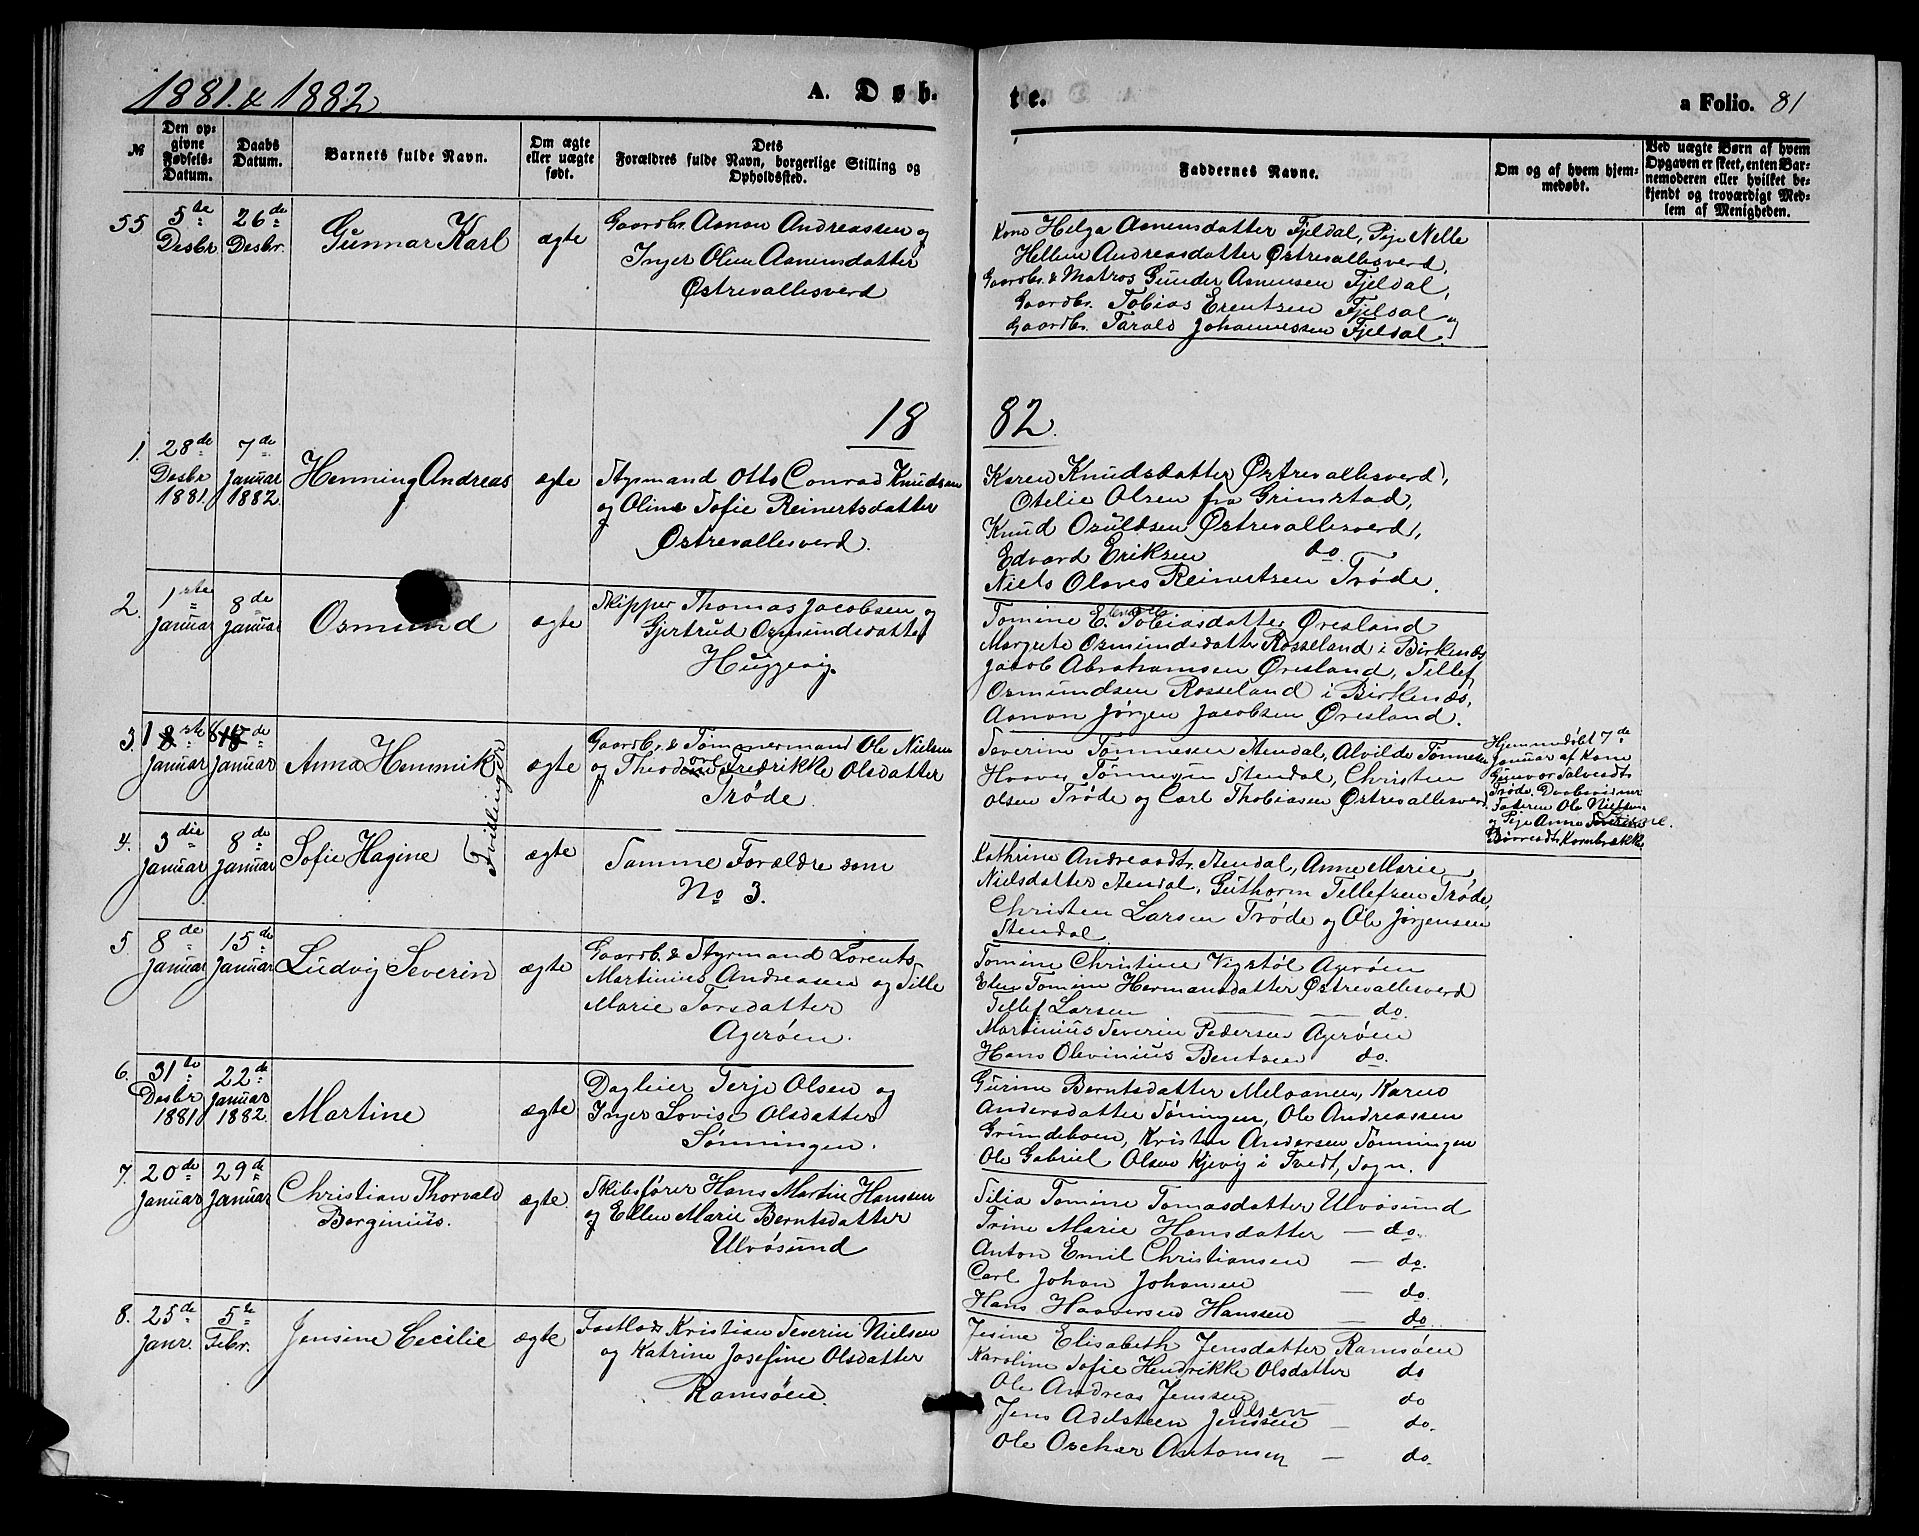 1881 & 1882
A. Døb-
te.
a Folio. 81
№
Den op-
givne
Fødsels-
Datum.
Daabs
Datum.
Barnets fulde Navn.
Om ægte
eller uægte
født.
Dets
Forældres fulde Navn, borgerlige Stilling og
Opholdssted.
Faddernes Navne.
Om og af hvem hjem-
medøbt.
Ved uægte Børn af hvem
Opgaven er skeet, enten Bar-
nemoderen eller hvilket be-
kjendt og troværdigt Med-
lem af Menigheden.
55
5te
Desbr
26de
Desbr.
Gunnar Karl
ægte
Gaardbr. Aanon Andreassen og
Inger Oline Aanensdatter
Østrevallesverd
Kone Helga Aanensdatter Fjeldal, Pige Nelle
Hellene Andreasdatter Østrevallesverd,
Gaardbr. & Matros Gunder Asmensen Fjeldal,
Gaardbr. Tobias Erentsen Fjeldal og
Gaardbr. Tarald Johannessen Fjeldal.
18
82.
1.
28de
Desbr
1881.
7de
Januar
1882.
Henning Andreas
ægte
Styrmand Otto Conrad Knudsen
og Oline Sofie Reinertsdatter
Østrevallesverd.
Karen Knudsdatter Østrevallesverd,
Otelie Olsen fra Grimstad,
Knud Osuldsen Østrevallesverd,
Edvard Eriksen do
Niels Olaves Reinertsen Trøde.
2.
1ste
Januar
8de
Januar
Osmund
ægte
Skipper Thomas Jacobsen og
Gjertrud Osmundsdatter
Huggevig.
Tomine E. Tobiasdatter Øresland
Margrete Osmundsdatter Rosseland i Birkenæs
Jacob Abrahamsen Øresland, Tellef
Osmundsen Rosseland i Birkenæs,
Aanon Jørgen Jacobsen Øresland.
3.
1ste
Januar
8de
Januar
Anna Hennnike
Tvillinger
ægte
Gaardb. & Tømmermand Ole Nielsen
og Fredrikke Olsdatter
Trøde.
Severine Tønnesen Stendal, Alvilde Tønnesen
Haaver Tønnesen Stendal, Christen
Olsen Trøde og Carl Thobiassen Østrevallesverd
Hjemmedøbt 7de
Januar af Kone
Gunvor Salvesdt.
Trøde. Daabsvidner
Faderen Ole Nielsen
og Pige Anne
4.
3die
Januar
8de
Januar
Sofie Hagine
ægte
Samme Forældre som
No 3.
Kathrine Andreasdt. Stendal, Anne Marie
Nielsdatter Stendal, Guthorm Tellefsen Trøde,
Christen Larsen Trøde og Ole Jørgensen
Stendal
5.
8de
Januar
15de
Januar
Ludvig Severin
ægte
Gaardb. & Styrmand Lorents
Martinius Andreasen og Sille
Marie Torsdatter
Agerøen.
Tomine Christine Vigstøl Agerøen
Elen Tomine Hermansdatter Østrevallesverd
Tellef Larsen do.
Martinius Severin Pedersen Agerøen
Hans Olevinius Bentsen do.
6.
31te
Desbr
1881
22de
Januar
1882.
Martine
ægte
Dagleier Terje Olsen og
Inger Lovise Olsdatter
Sønningen.
Gurine Berntsdatter Meloanen, Karen
Andersdatter Sønningen, Ole Andreassen
Grundeboen, Kristen Andersen Sønningen
Ole Gabriel Olsen Kjevig i Tvedt, Sogn.
7.
20de
Januar
29de
Januar
Christian Thorvald
Berginius.
ægte.
Skibsfører Hans Martin Hanssen
og Ellen Marie Berntsdatter
Ulvøsund
Silia Tomine Tomasdatter Ulvøsund
Trine Marie Hansdatter — do.
Anton Emil Christiansen — do.
Carl Johan Johansen — do.
Hans Haaversen Hanssen — do.
8.
25de
Janr.
5te
Febr.
Jensine Cecilie
ægte
Fastlods Kristian Severin Nielsen
og Katrine Josefine Olsdatter
Ramsøen.
Jesine Elisabeth Jensdatter Ramsøen
Karoline Sofie Hendrikke Olsdatter do
Ole Andreas Jenssen — do
Olsen
Jens Adelsteen Jenssen — do.
Ole Oschar Antonsen — do.